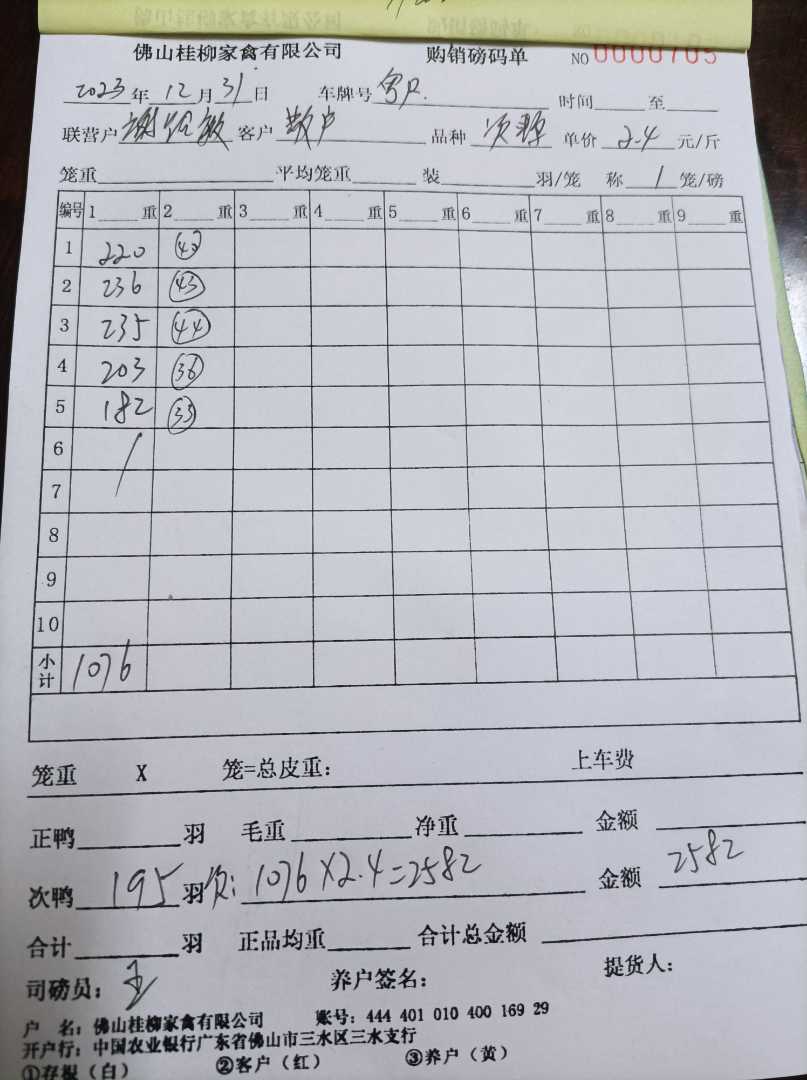 佛山桂柳家禽有限公司 购销磅码单 NO 0000705
2023年12月31日 车牌号 时间 至
联营户 谢 敏 客户 散户 品种 次 单价 2.4 元/斤
笼重 平均笼重 装 羽/笼 称 1 笼/磅
编号 1 重 2 重 3 重 4 重 5 重 6 重 7 重 8 重 9 重
1 220 42
2 236 43
3 235 44
4 203 36
5 182
6
7
8
9
10
小计 1076
笼重 X 笼=总皮重: 上车费
正鸭 羽 毛重 净重 金额
次鸭 195 羽 次: 1076X2.4=2582 金额 2582
合计 羽 正品均重 合计总金额
司磅员: 养户签名: 提货人:
户 名: 佛山桂柳家禽有限公司 账号: 444 401 010 400 169 29
开户行: 中国农业银行广东省佛山市三水区三水支行
①存根(白) ②客户(红) ③养户(黄)